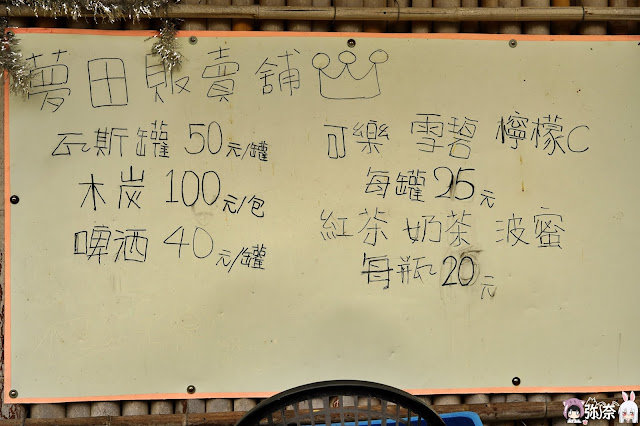 夢田販賣舖
瓦斯罐 50元/罐
木炭 100元/包
啤酒 40元/罐
可樂 雪碧 檸檬C
每罐25元
紅茶 奶茶 波蜜
每瓶20元
弥奈